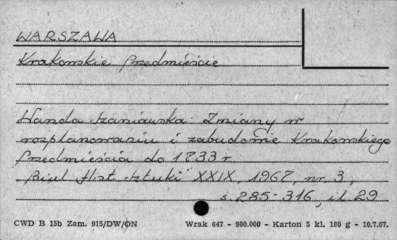 WARSZAWA
Krakowskie Przedmieście
Wanda Szaniawska: Zmiany w
rozplanowaniu i zabudowie Krakowskiego
Przedmieścia do 1733 r.
"Biul. Hist. Sztuki" XXIX, 1967, nr. 3,
s. 285-316, il. 29
CWD B 15b Zam. 915/DW/ON Wrak 647 - 980.000 - Karton 5 kl. 180 g - 10.7.67.